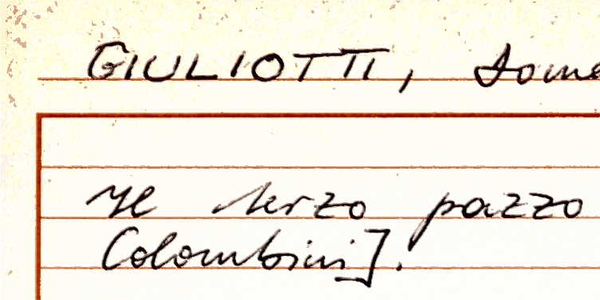 GIULIOTTI, Dome
Il terzo pazzo
Colombini].